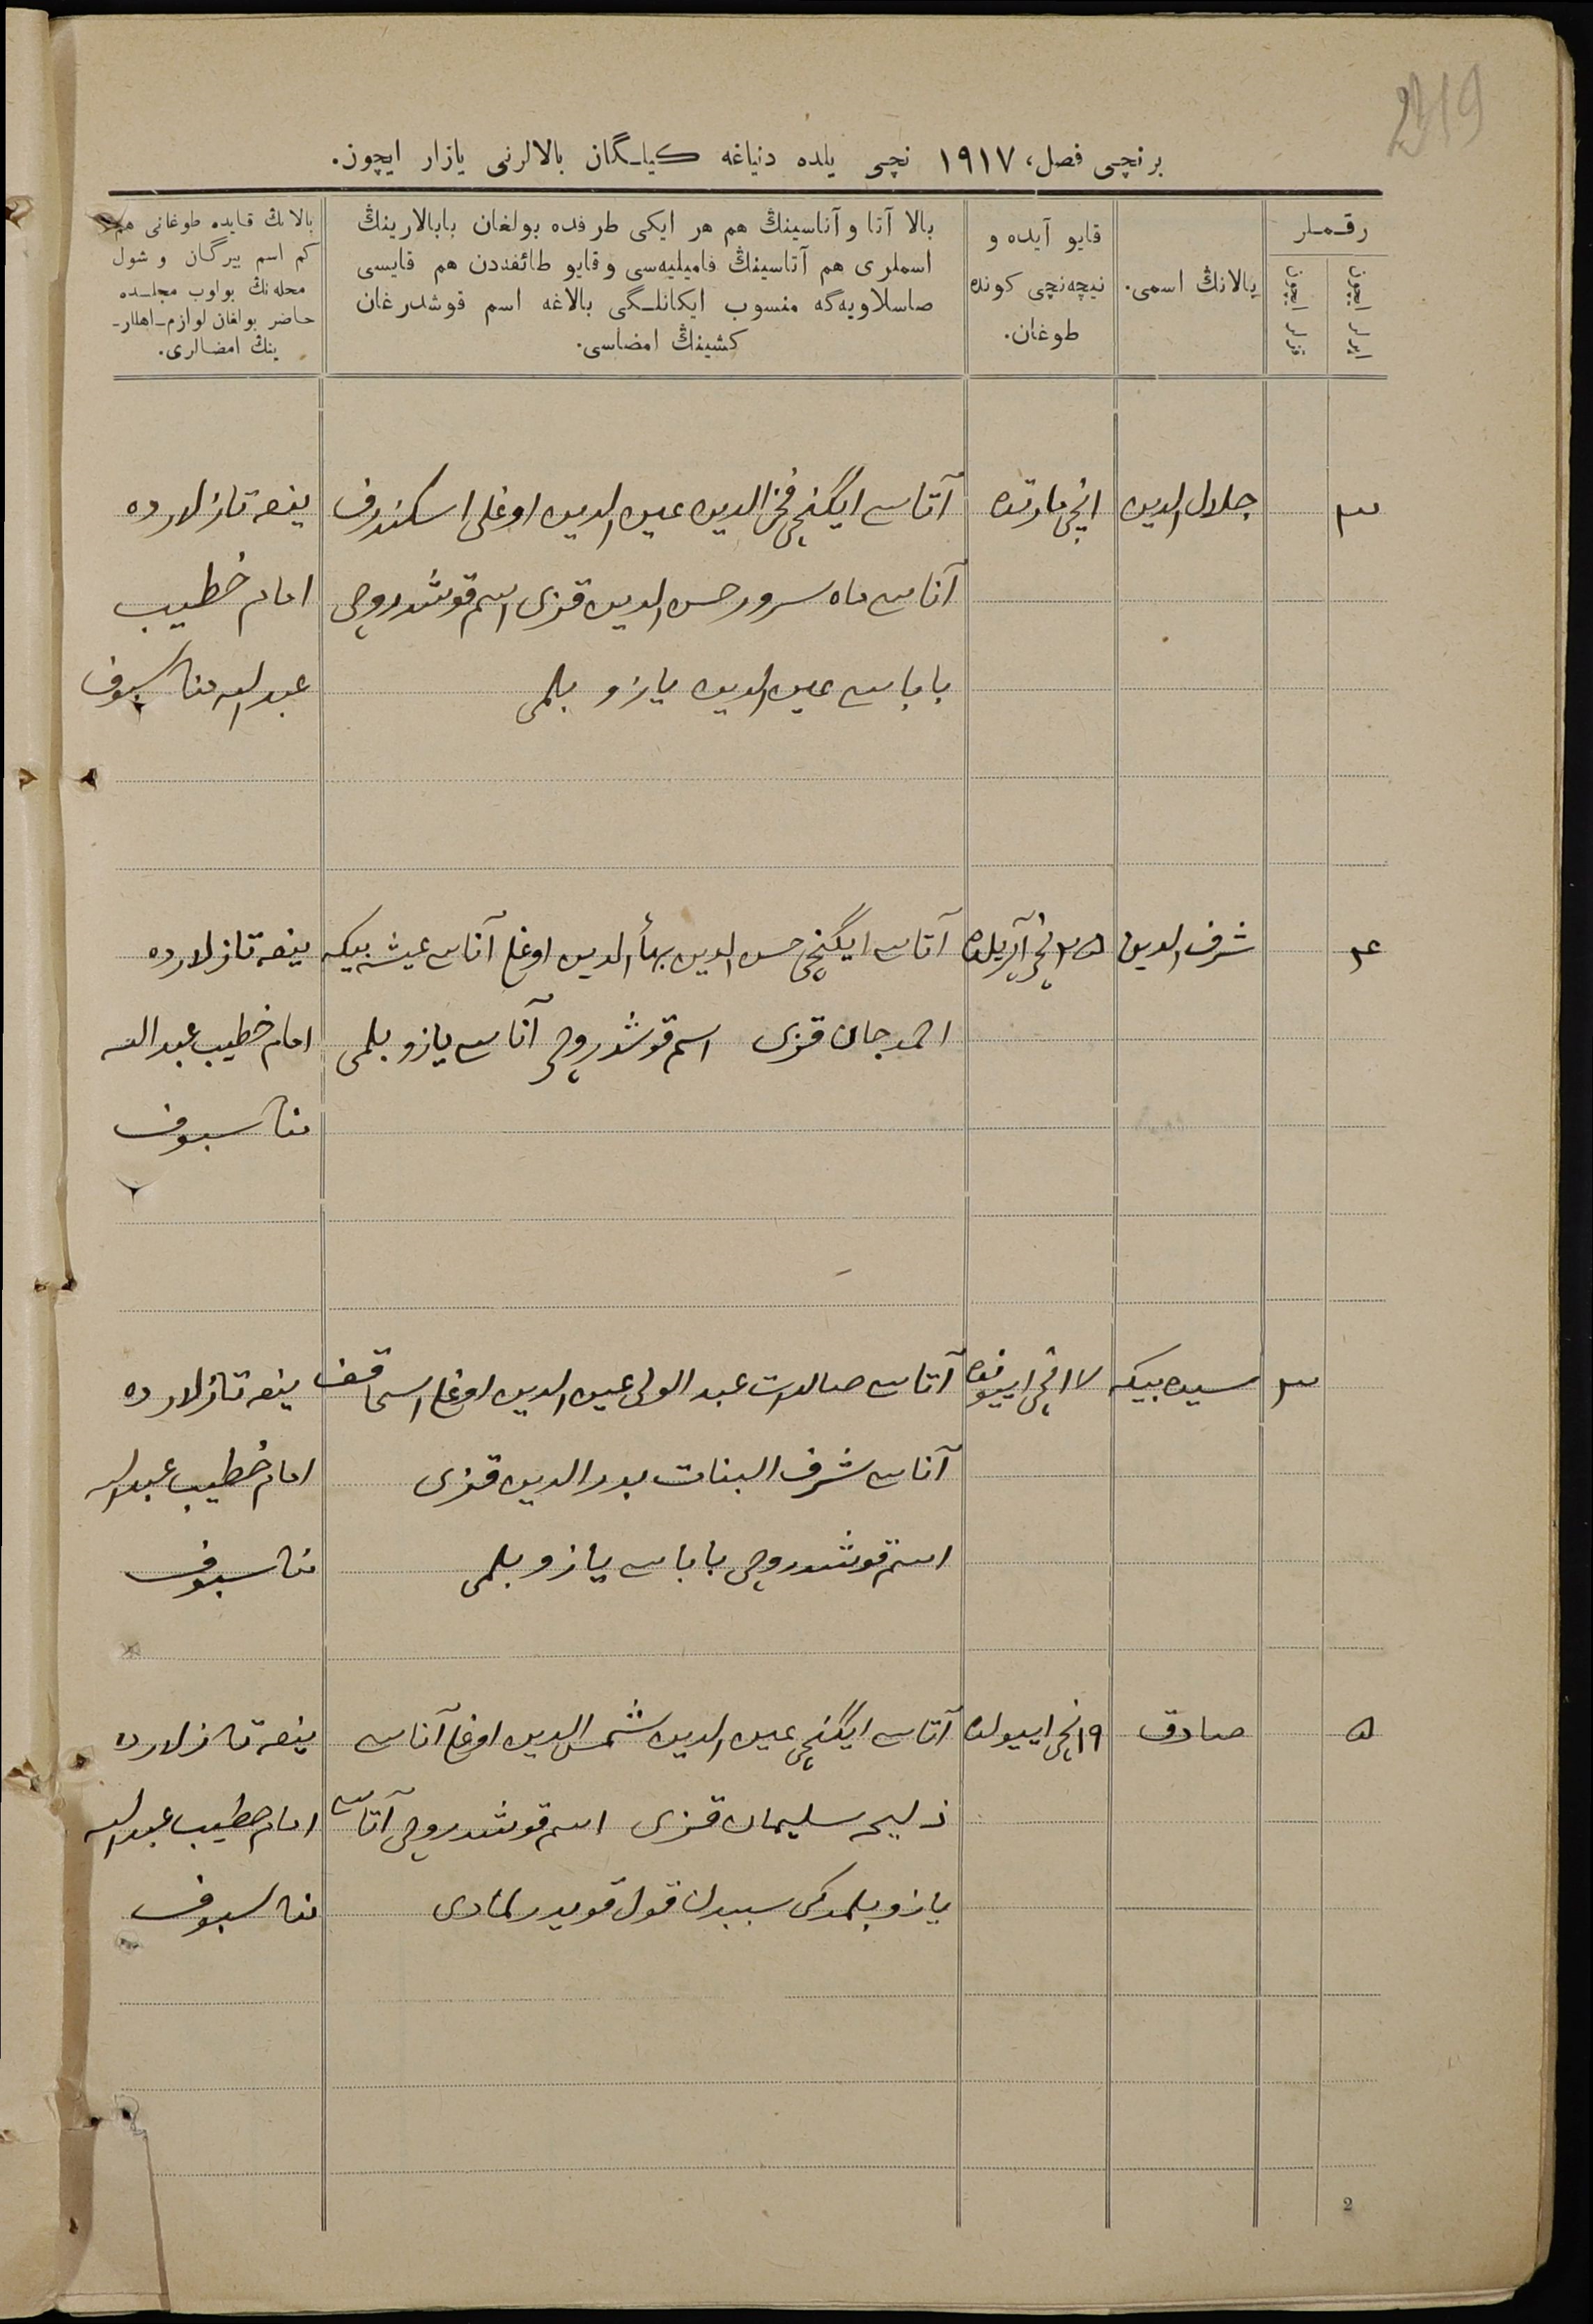 219
برنچی فصل، ١٩١٧ نچی یلده دنیاغه کیلگان بالالرنی یازار ایچون.
رقملر
ایرلر ایچون
قزلر ایچون
بالانڭ اسمی.
قایو آیده و
نیچه‌نچی کونده
طوغان.
بالا آتا و آناسینڭ هم هر ایکی طرفده بولغان بابالارینڭ
اسملری هم آتاسینڭ فامیلیه‌سی و قایو طائفه‌دن هم قایسی
صاسلاویه‌گه منسوب ایکانلگی بالاغه اسم قوشدرغان
کشینڭ امضاسی.
بالانڭ قایده طوغانی هم
کم اسم بیرگان و شول
محله‌نڭ بولوب مجلسده
حاضر بولغان لوازم اهللار-
ینڭ امضالری.
٣ جلال الدین ١نچی مارتده آتاسی ایگنچی فخرالدین عین الدین اوغلی اسکندرف
آناسی ماه سرور حسن الدین قزی اسم قوشدروچی
باباسی عین الدین یازو بلمی
تازلارده
امام خطیب
عبدالله مناسبوف
٤ شرف الدین ٢٥نچی آپریلده آتاسی ایگنچی حسن الدین بهأالدین اوغلی آناسی عیشه بیکه
احمدجان قزی اسم قوشدروچی آتاسی یازو بلمی
تازلارده
امام خطیب عبدالله
مناسبوف
٣ سیده بیکه ١٧نچی اییونده آتاسی صالدات عبدالولی عین الدین اوغلی اسحاقف
آناسی شرف البنات بدرالدین قزی
اسم قوشدروچی باباسی یازو بلمی
تازلارده
امام خطیب عبدالله
مناسبوف
٥ صادق ١٩نچی اییولده آتاسی ایگنچی عین الدین شمس الدین اوغلی آناسی
زلیحه سلیمان قزی اسم قوشدروچی آتاسی
یازو بلمدکی سببدن قول قویدرلمادی
تازلارده
امام خطیب عبدالله
مناسبوف
2